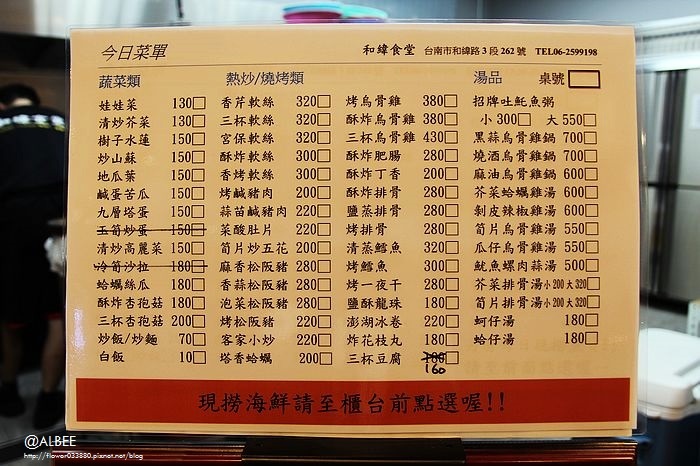 今日菜單 和緯食堂 台南市和緯路3段262號 TEL06-2599198
蔬菜類 熱炒/燒烤類 湯品 桌號
娃娃菜 130
清炒芥菜 130
樹子水蓮 150
炒山蘇 150
地瓜葉 150
鹹蛋苦瓜 150
九層塔蛋 150
玉筍炒蛋 150
清炒高麗菜 150
冷筍沙拉 180
蛤蠣絲瓜 180
酥炸杏孢菇 180
三杯杏孢菇 200
炒飯/炒麵 70
白飯 10
香芹軟絲 320
三杯軟絲 320
宮保軟絲 320
酥炸軟絲 300
香烤軟絲 300
烤鹹豬肉 200
蒜苗鹹豬肉 220
菜酸肚片 220
筍片炒五花 200
麻香松阪豬 280
香蒜松阪豬 280
泡菜松阪豬 280
烤松阪豬 220
客家小炒 220
塔香蛤蠣 200
烤烏骨雞 380
酥炸烏骨雞 380
三杯烏骨雞 430
酥炸肥腸 280
酥炸丁香 200
酥炸排骨 280
鹽蒸排骨 280
烤排骨 280
清蒸鱈魚 320
烤鱈魚 300
烤一夜干 280
鹽酥龍珠 180
澎湖冰卷 220
炸花枝丸 180
三杯豆腐 180
160
招牌吐魠魚粥
小300 大550
黑蒜烏骨雞鍋 700
燒酒烏骨雞鍋 700
麻油烏骨雞鍋 600
芥菜蛤蠣雞湯 600
剝皮辣椒雞湯 600
筍片烏骨雞湯 550
瓜仔烏骨雞湯 550
魷魚螺肉蒜湯 500
芥菜排骨湯小200大320
筍片排骨湯小200大320
蚵仔湯 180
蛤仔湯 180
現撈海鮮請至櫃台前點選喔!!
@ALBEE
http://flower033880.pixnet.net/blog